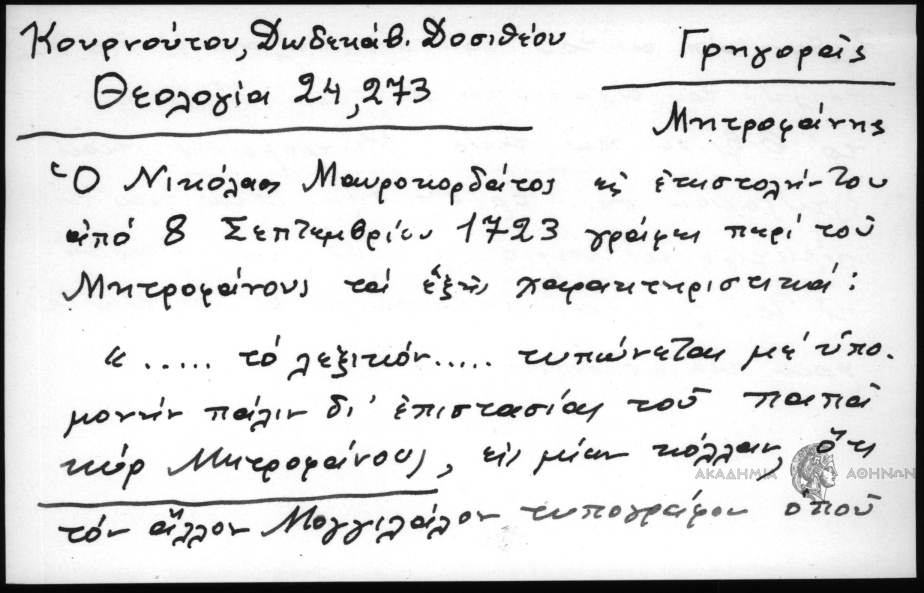 Κουρνούτου, Δωδεκάβ. Δοσιθέου
Θεολογία 24,273
Γρηγορᾶς
Μητροφάνης
Ὁ Νικόλαος Μαυροκορδᾶτος εἰς ἐπιστολήν του
ἀπό 8 Σεπτεμβρίου 1723 γράφει περί τοῦ
Μητροφάνους τά ἑξῆς χαρακτηριστικά:
"..... τό λεξικόν..... τυπώνεται μέ ὑπο-
μονήν πάλιν δι' ἐπιστασίας τοῦ παπᾶ
κύρ Μητροφάνους, εἰς μίαν κόλλαν, ὅτι
τόν ἄλλον Μογγιλάλον τυπογράφον ὁποῦ
ΑΚΑΔΗΜΙΑ ΑΘΗΝΩΝ